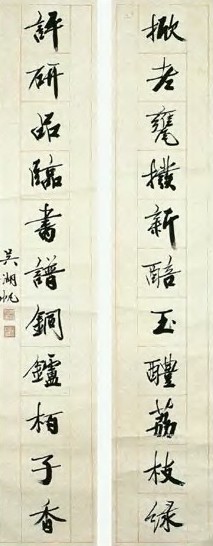 揿老甕撲新醅玉醴荔枝绿
評研品臨書譜銅鑪柏子香
吳湖帆